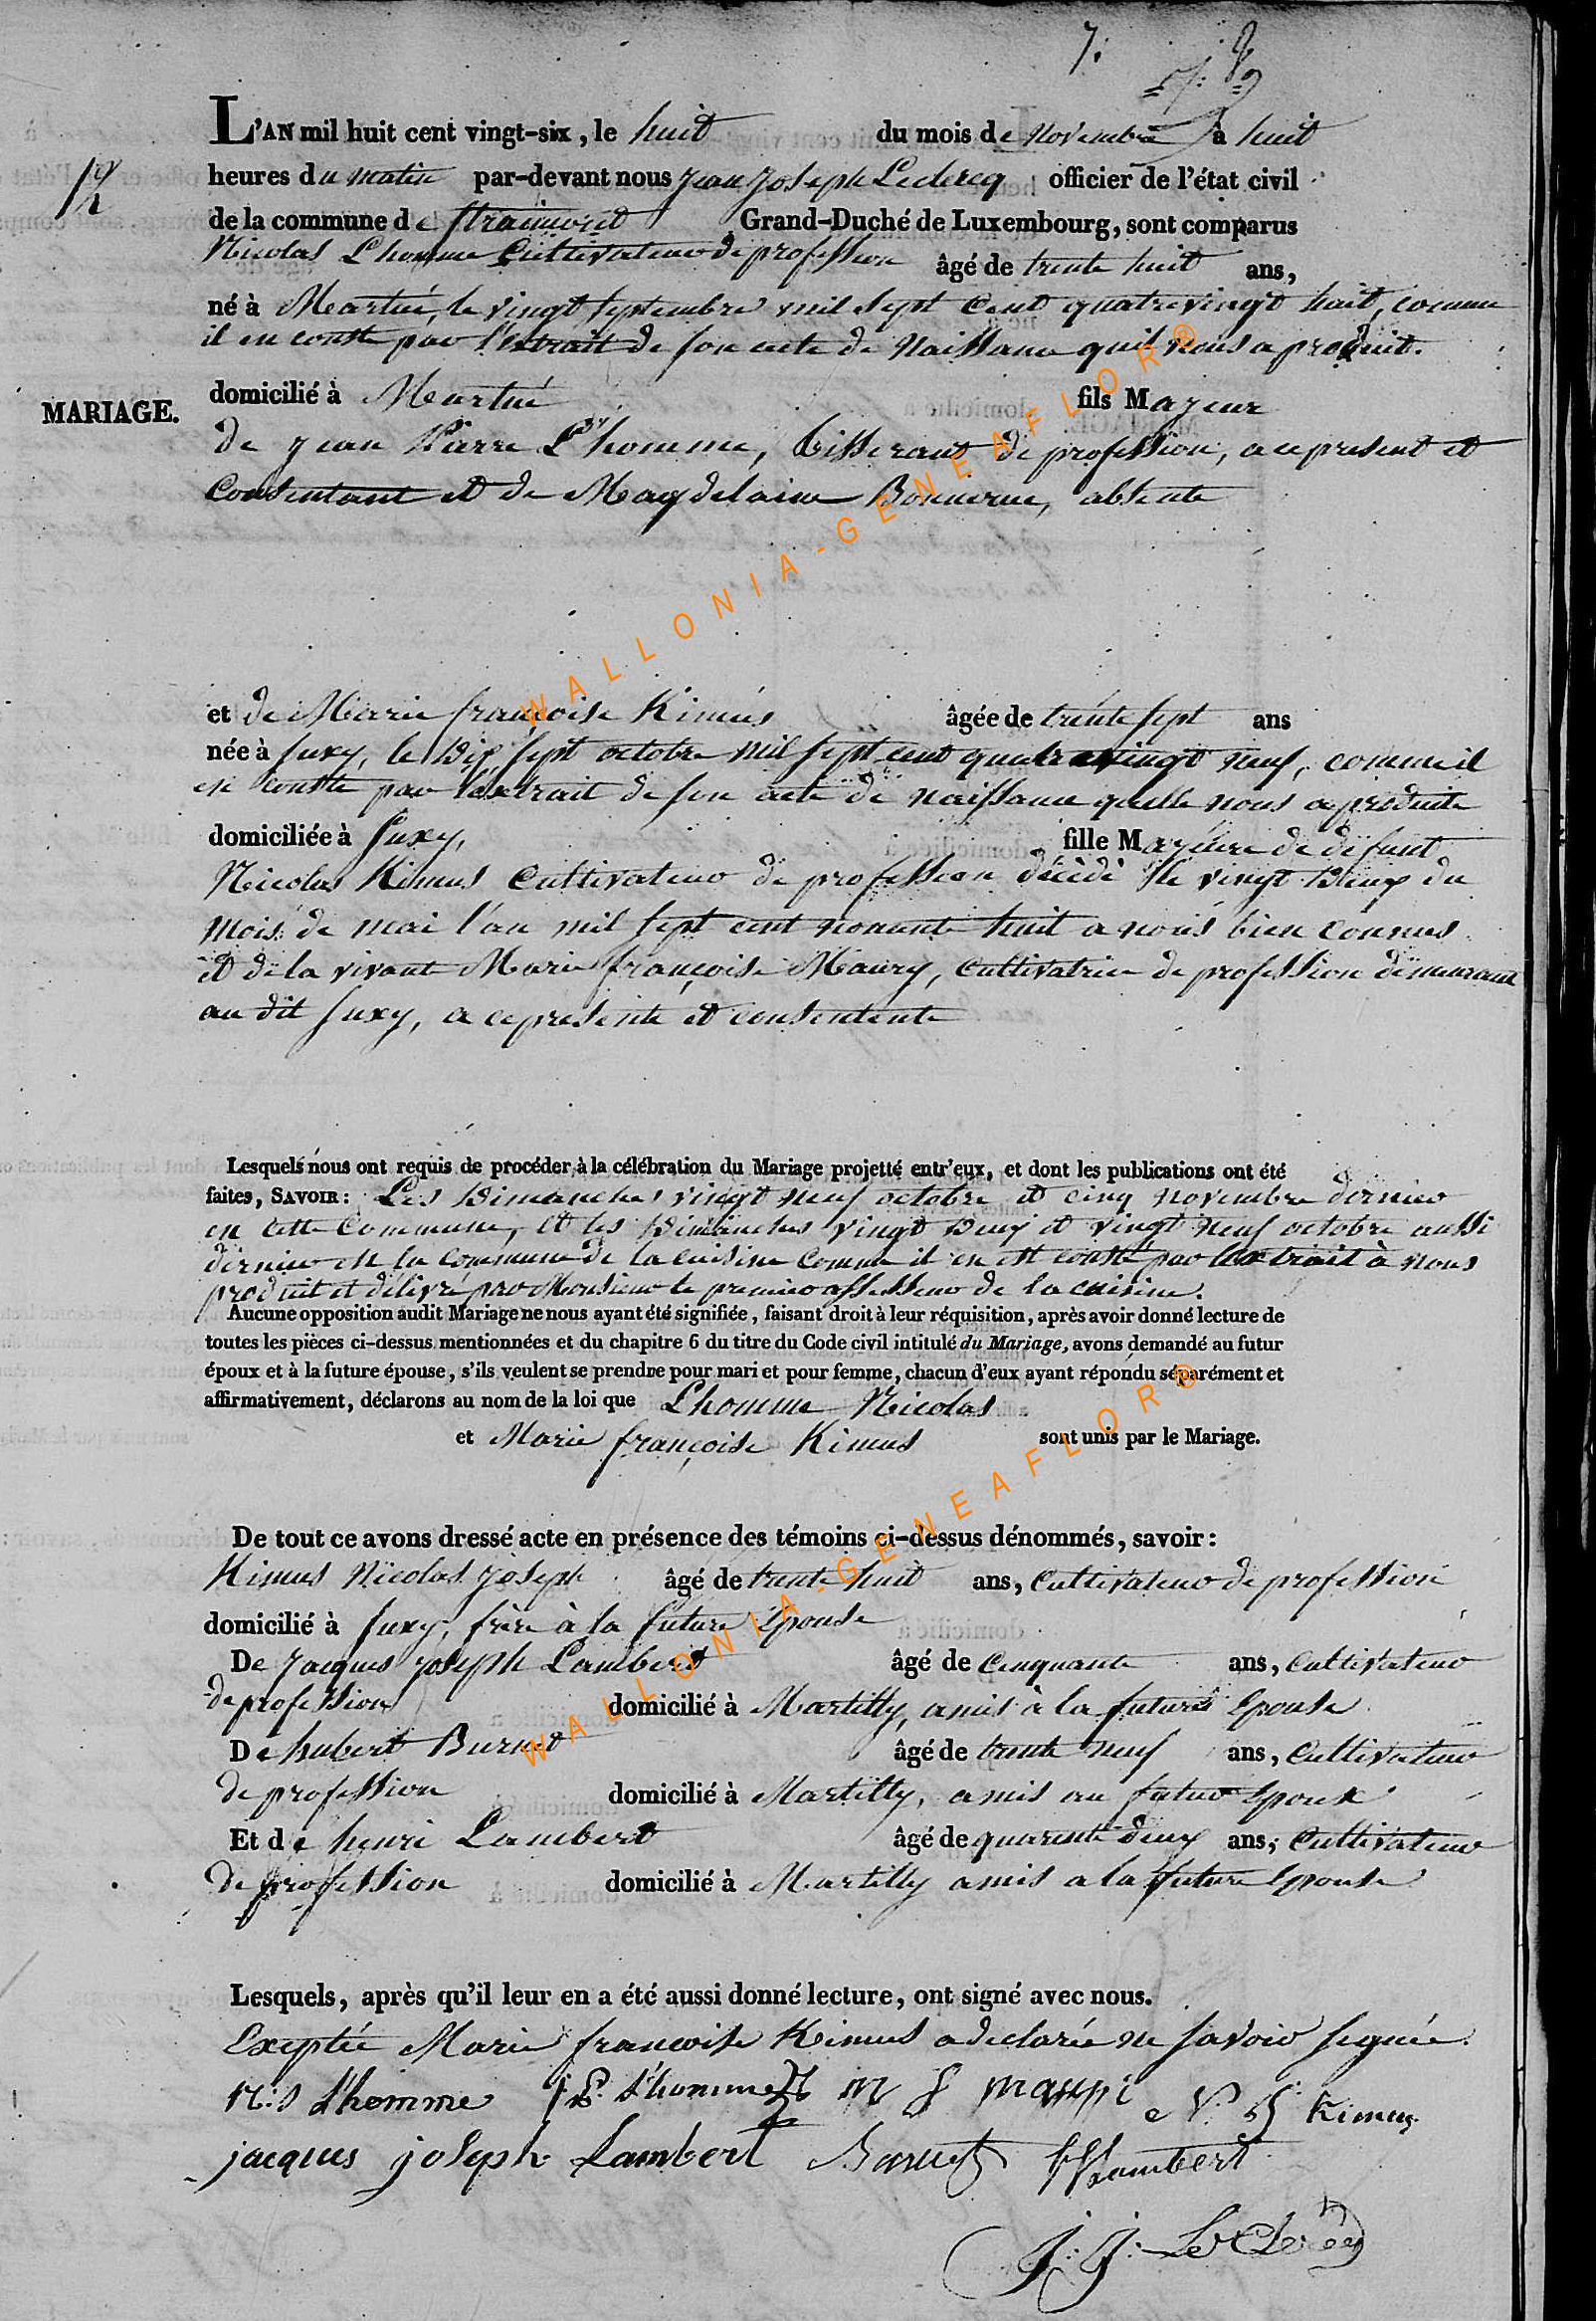 7.
L'AN mil huit cent vingt-six, le huit du mois de Novembre à huit
heures du matin par-devant nous Jean Joseph Leclercq officier de l'état civil
de la commune de Straimont Grand-Duché de Luxembourg, sont comparus
Nicolas Lhomme Cultivateur de profession âgé de trente huit ans,
né à Martué, le vingt septembre mil sept cent quatrevingt huit, comme
il en conste par l'extrait de son acte de Naissance quil nous a produit.
domicilié à Martué fils Majeur
MARIAGE.
de jean Pierre L'homme, tisserant de profession, a ce present et
Consentant et de Magdelaine Bonnerue, absente
et de Marie françoise Kimus âgée de trente sept ans
née à Suxy, le Dix sept octobre mil sept cent quatrevingt neuf, comme il
en conste par l'extrait de son acte de naissance quelle nous a produite
domiciliée à Suxy, fille Majeure de defunt
Nicolas Kimus Cultivateur de profession décèdé le vingt Deux du
mois de mai l'an mil sept cent nonante huit a nous bien connus
et de la vivante Marie françoise Maury, Cultivatrice de profession demeurant
au dit Suxy, a ce presente et consentente
Lesquels nous ont requis de procéder à la célébration du Mariage projetté entr'eux, et dont les publications ont été
faites, SAVOIR: Les Dimanches vingt neuf octobre et cinq novembre dernier
en cette Commune, et les Dimanches vingt Deux et vingt neuf octobre aussi
dernier en la commune de la cuisine comme il en est conste par l'extrait à nous
produit et délivré par Monsieur le premier assesseur de la cuisine.
Aucune opposition audit Mariage ne nous ayant été signifiée, faisant droit à leur réquisition, après avoir donné lecture de
toutes les pièces ci-dessus mentionnées et du chapitre 6 du titre du Code civil intitulé du Mariage, avons demandé au futur
époux et à la future épouse, s'ils veulent se prendre pour mari et pour femme, chacun d'eux ayant répondu séparément et
affirmativement, déclarons au nom de la loi que Lhomme Nicolas
et Marie françoise Kimus sont unis par le Mariage.
De tout ce avons dressé acte en présence des témoins ci-dessus dénommés, savoir:
Kimus Nicolas Joseph âgé de trente huit ans, Cultivateur de profession
domicilié à Suxy, frère à la future Epouse
De Jacques joseph Lambert âgé de Cinquante ans, Cultivateur
de profession domicilié à Martilly, amis à la future Epouse
De hubert Burnet âgé de trente neuf ans, Cultivateur
de profession domicilié à Martilly, amis au futur Epoux
Et de henri Lambert âgé de quarente deux ans, Cultivateur
de profession domicilié à Martilly amis a la future Epouse
Lesquels, après qu'il leur en a été aussi donné lecture, ont signé avec nous.
Exeptée Marie francoise Kimus a declarée ne savoir signée.
N:s Lhomme J P. Lhomme m f maupi N. J Kimus
jacques joseph Lambert Burnet H Lambert
J: J: LeClercq
WALLONIA-GENEAFLOR®
WALLONIA-GENEAFLOR®